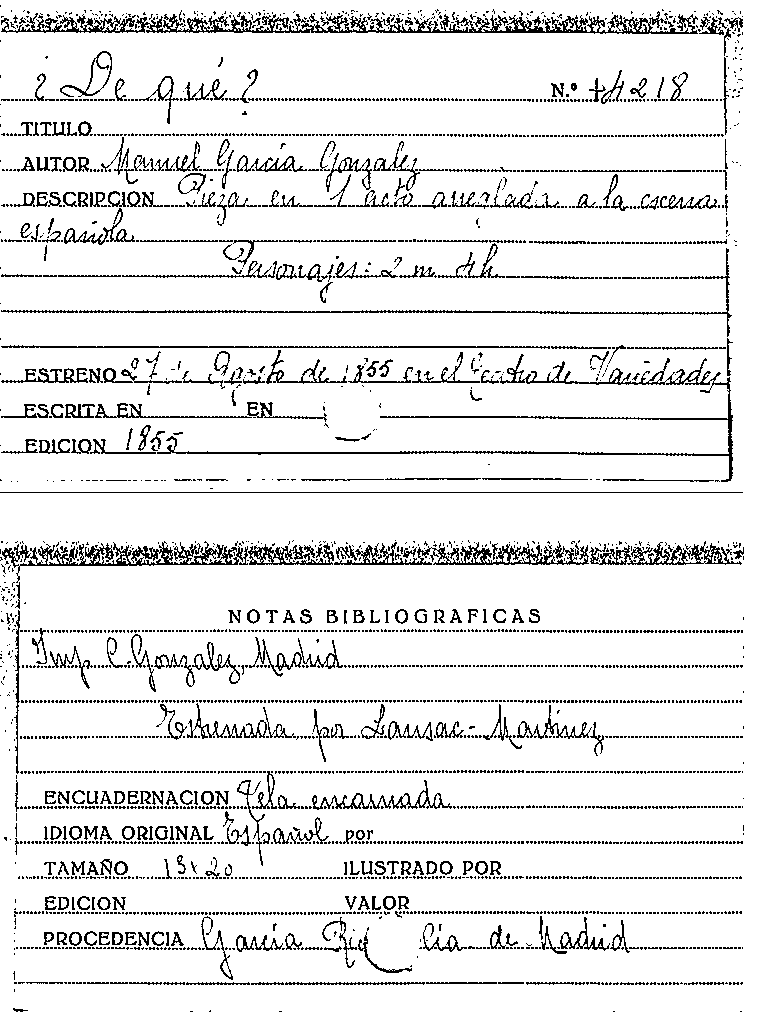 ¿De qué? N.º 4218
TITULO
AUTOR Manuel García González
DESCRIPCION Pieza en 1 acto arreglada a la escena
española
Personajes: 2 m 4h
ESTRENO 27 de Agosto de 1855 en el Teatro de Variedades
ESCRITA EN EN
EDICION 1855
NOTAS BIBLIOGRAFICAS
Imp C. Gonzalez, Madrid
Estrenada por Lansac-Martinez
ENCUADERNACION Tela encarnada
IDIOMA ORIGINAL Español por
TAMAÑO 13x20 ILUSTRADO POR
EDICION VALOR
PROCEDENCIA García Rico Cía de Madrid